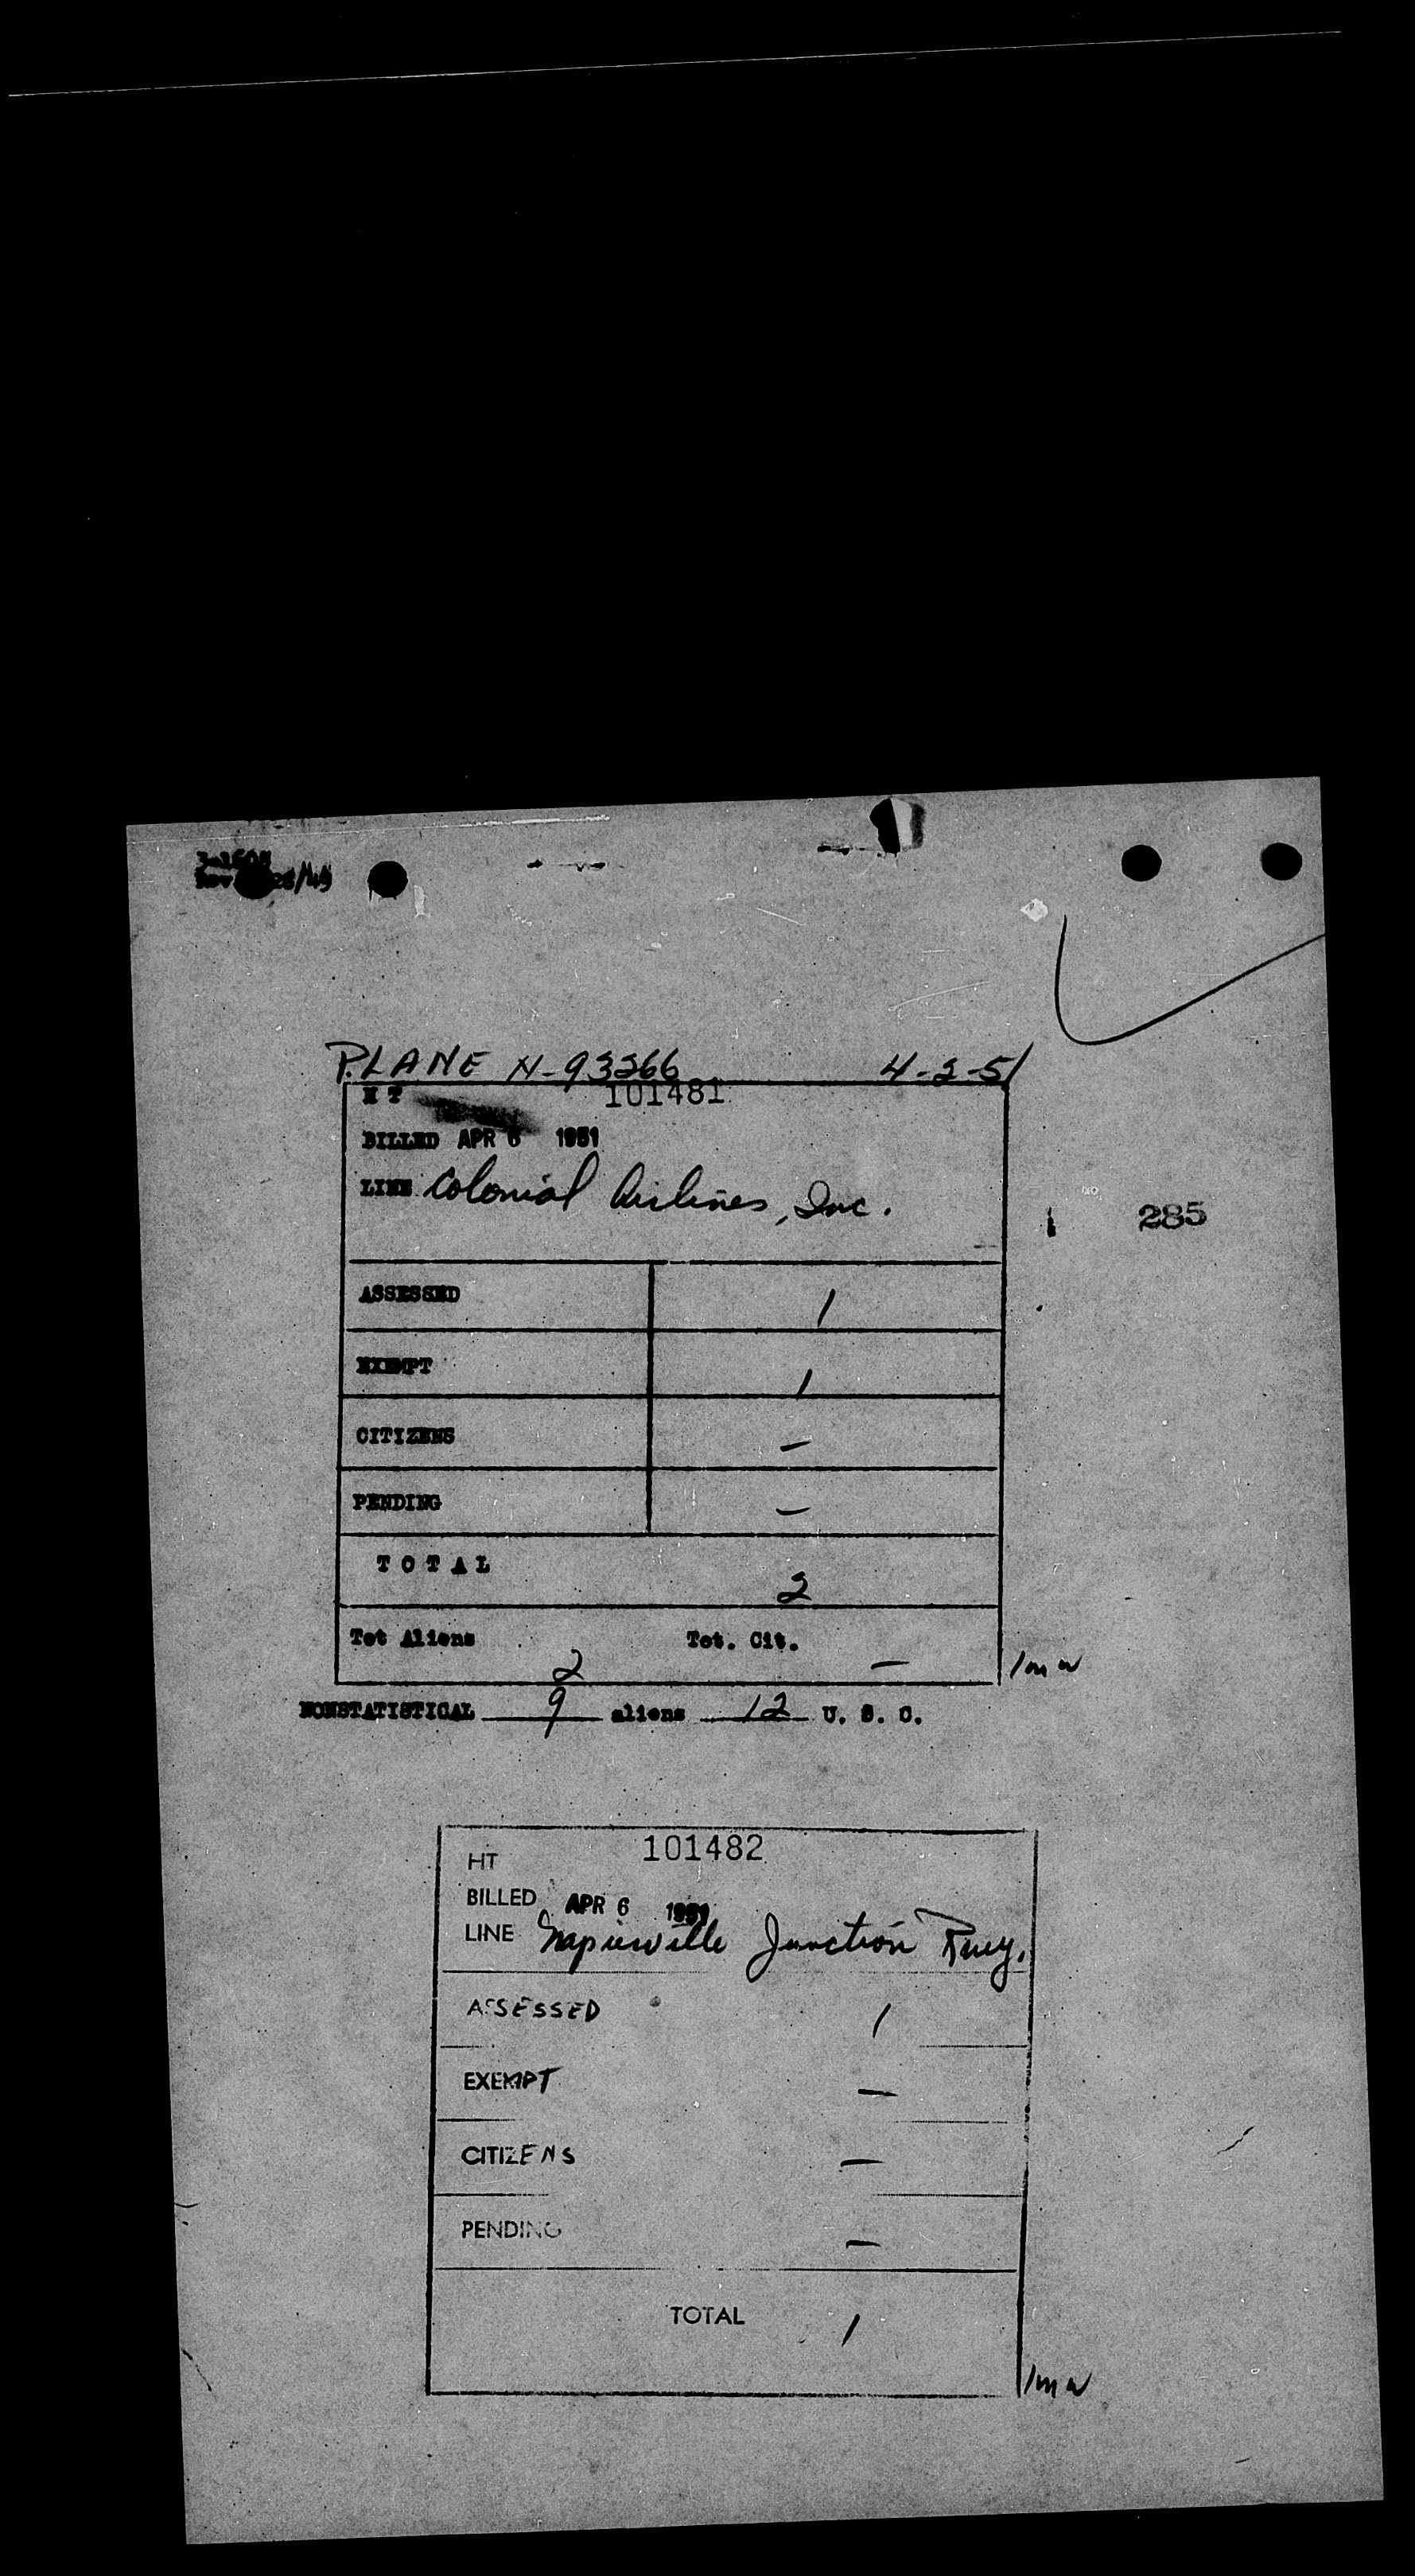 PLANE N-93266 4-2-51
H T 101481
BILLED APR 6 1951
LINE Colonial Airlines, Inc.
285
ASSESSED 1
EXEMPT 1
CITIZENS –
PENDING –
TOTAL 2
Tot Aliens 2 Tot. Cit. –
NONSTATISTICAL 9 aliens 12 U. S. C.
HT 101482
BILLED APR 6 1951
LINE Napierville Junction Rwy.
ASSESSED 1
EXEMPT –
CITIZENS –
PENDING –
TOTAL 1